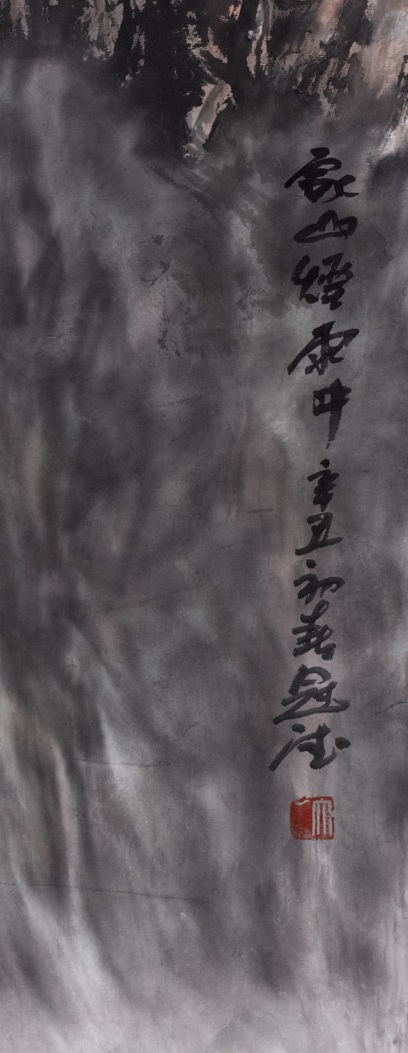 家山煙雨中辛丑初春